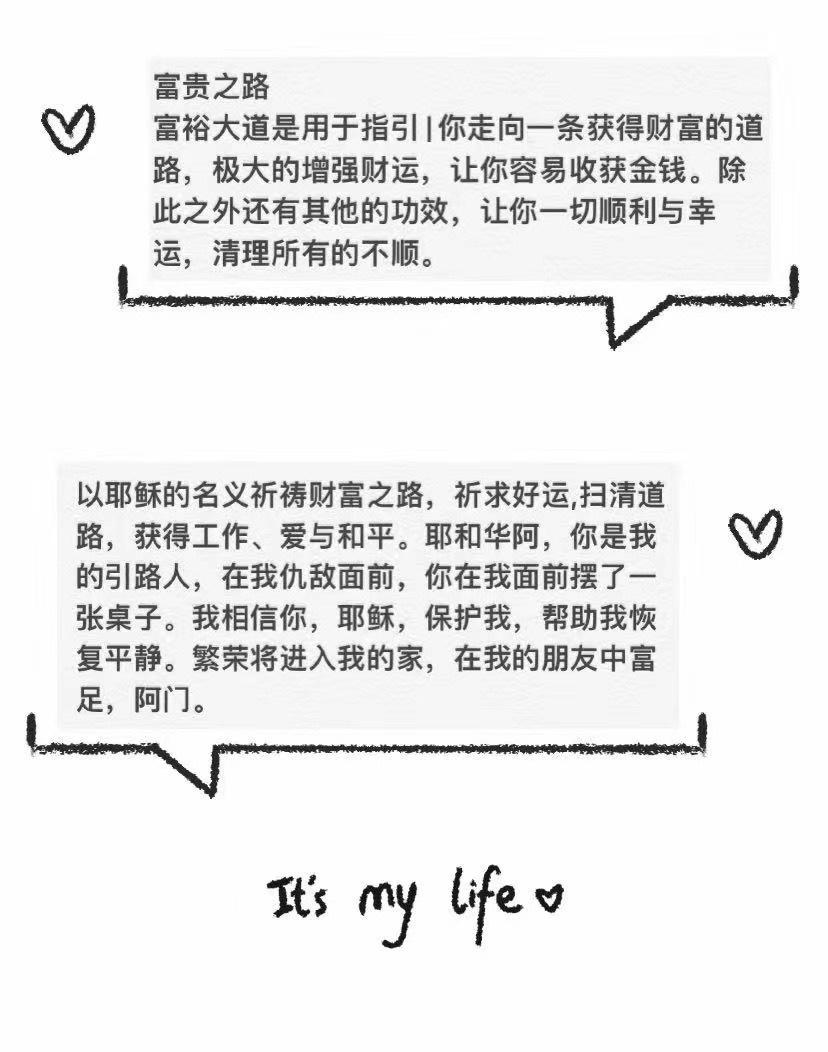 富贵之路
富裕大道是用于指引|你走向一条获得财富的道
路，极大的增强财运，让你容易收获金钱。除
此之外还有其他的功效，让你一切顺利与幸
运，清理所有的不顺。
以耶稣的名义祈祷财富之路，祈求好运,扫清道
路，获得工作、爱与和平。耶和华阿，你是我
的引路人，在我仇敌面前，你在我面前摆了一
张桌子。我相信你，耶稣，保护我，帮助我恢
复平静。繁荣将进入我的家，在我的朋友中富
足，阿门。
It's my life